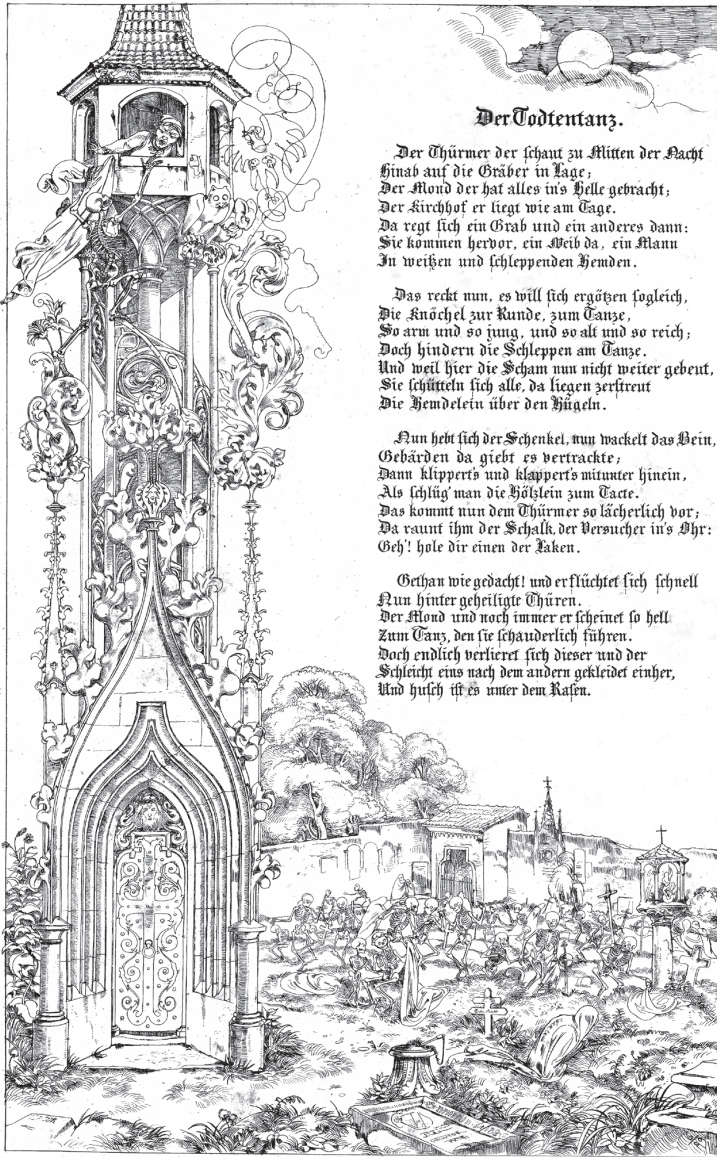 Der Todtentanz.
Der Thürmer der schaut zu Mitten der Nacht
Hinab auf die Gräber in Lage;
Der Mond der hat alles in's Helle gebracht;
Der Kirchhof er liegt wie am Tage.
Da regt sich ein Grab und ein anderes dann:
Sie kommen hervor, ein Weib da, ein Mann
In weißen und schleppenden Hemden.
Das reckt nun, es will sich ergötzen sogleich,
Die Knöchel zur Runde, zum Tanze,
So arm und so jung, und so alt und so reich;
Doch hindern die Schleppen am Tanze.
Und weil hier die Scham nun nicht weiter gebeut,
Sie schütteln sich alle, da liegen zerstreut
Die Hemdelein über den Hügeln.
Nun hebt sich der Schenkel, nun wackelt das Bein,
Gebärden da giebt es vertrackte;
Dann klippert's und klappert's mitunter hinein,
Als schlüg' man die Hölzlein zum Tacte.
Das kommt nun dem Thürmer so lächerlich vor;
Da raunt ihm der Schalk, der Versucher in's Ohr:
Geh'! hole dir einen der Laken.
Gethan wie gedacht! und er flüchtet sich schnell
Nun hinter geheiligte Thüren.
Der Mond und noch immer er scheinet so hell
Zum Tanz, den sie schauderlich führen.
Doch endlich verlieret sich dieser und der
Schleicht eins nach dem andern gekleidet einher,
Und husch ist es unter dem Rasen.